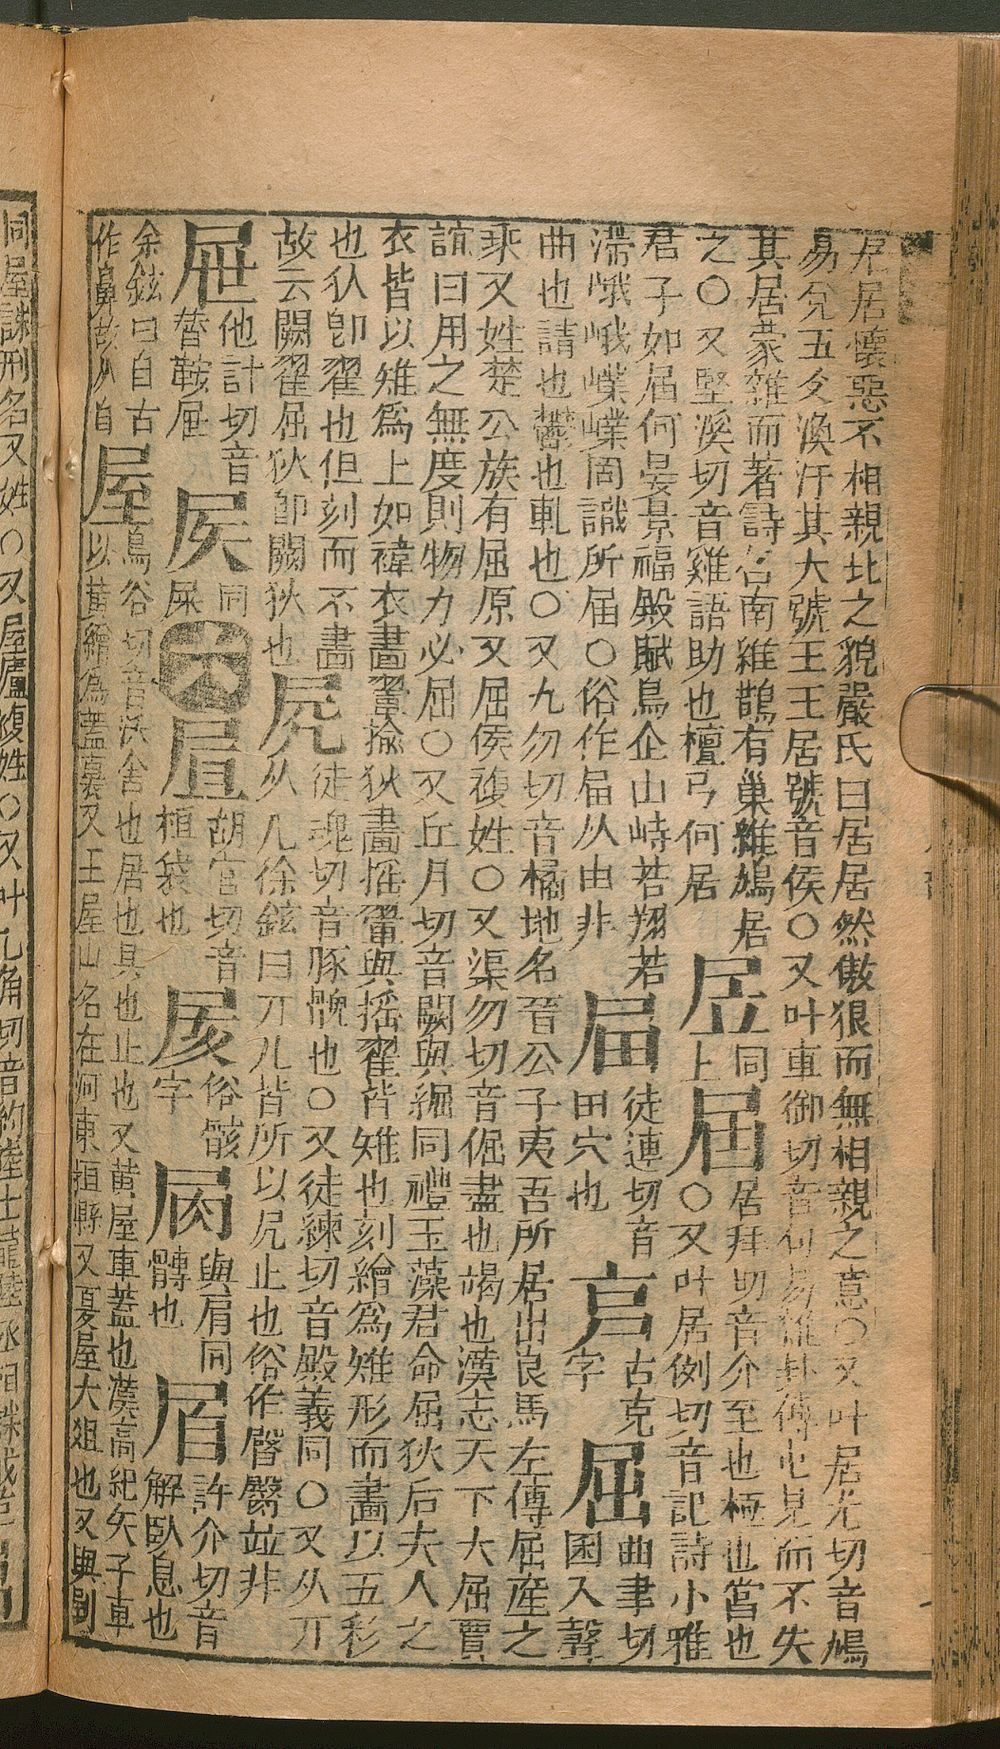 居居懷惡不相親比之貌嚴氏曰居居然傲狠而無相親之意○又叶居尤切音鳩
易奐五爻渙汗其大號王王居號音侯○又叶車御切音句易雜卦傳屯見而不失
其居蒙雜而著詩召南維鵲有巢維鳩居
之○又堅溪切音雞語助也檀弓何居
凥
同
上
届
居拜切音介至也極也當也
○又叶居例切音記詩小雅
君子如届何晏景福殿賦鳥企山峙若翔若
滯峨峨嶫嶫罔識所届○俗作届从由非
㞌
徒連切音
田穴也
㐭
古克
字
屈
曲聿切
困入聲
曲也請也鬱也軋也○又九勿切音橘地名晉公子夷吾所居出良馬左傳屈産之
乘又姓楚公族有屈原又屈侯複姓○又渠勿切音倔盡也竭也漢志天下大屈賈
誼曰用之無度則物力必屈○又丘月切音闕與䘿同禮玉藻君命屈狄后夫人之
衣皆以雉爲上如褘衣畫翬揄狄畫揺翬與揺翟皆雉也刻繒爲雉形而畫以五彩
也狄卽翟也但刻而不畫
故云闕翟屈狄卽闕狄也
凥
徒魂切音豚髋也○又徒練切音殿義同○又从丌
从几徐鉉曰丌几皆所以凥止也俗作臋臀竝非
屉
他計切音
替鞍屉
屄
同
屎
六
㞋
胡官切音
桓袋也
㞏
俗骸
字
㞕
與肩同
髆也
眉
許介切音
解臥息也
余鉉曰自古
作鼻故从自
屋
烏谷切音沃舍也居也具也止也又黄屋車蓋也漢高紀天子車
以黄繒爲蓋裏又王屋山名在河東垣縣又夏屋大俎也又與劅
同屋誅刑名又姓○又屋廬複姓○又叶